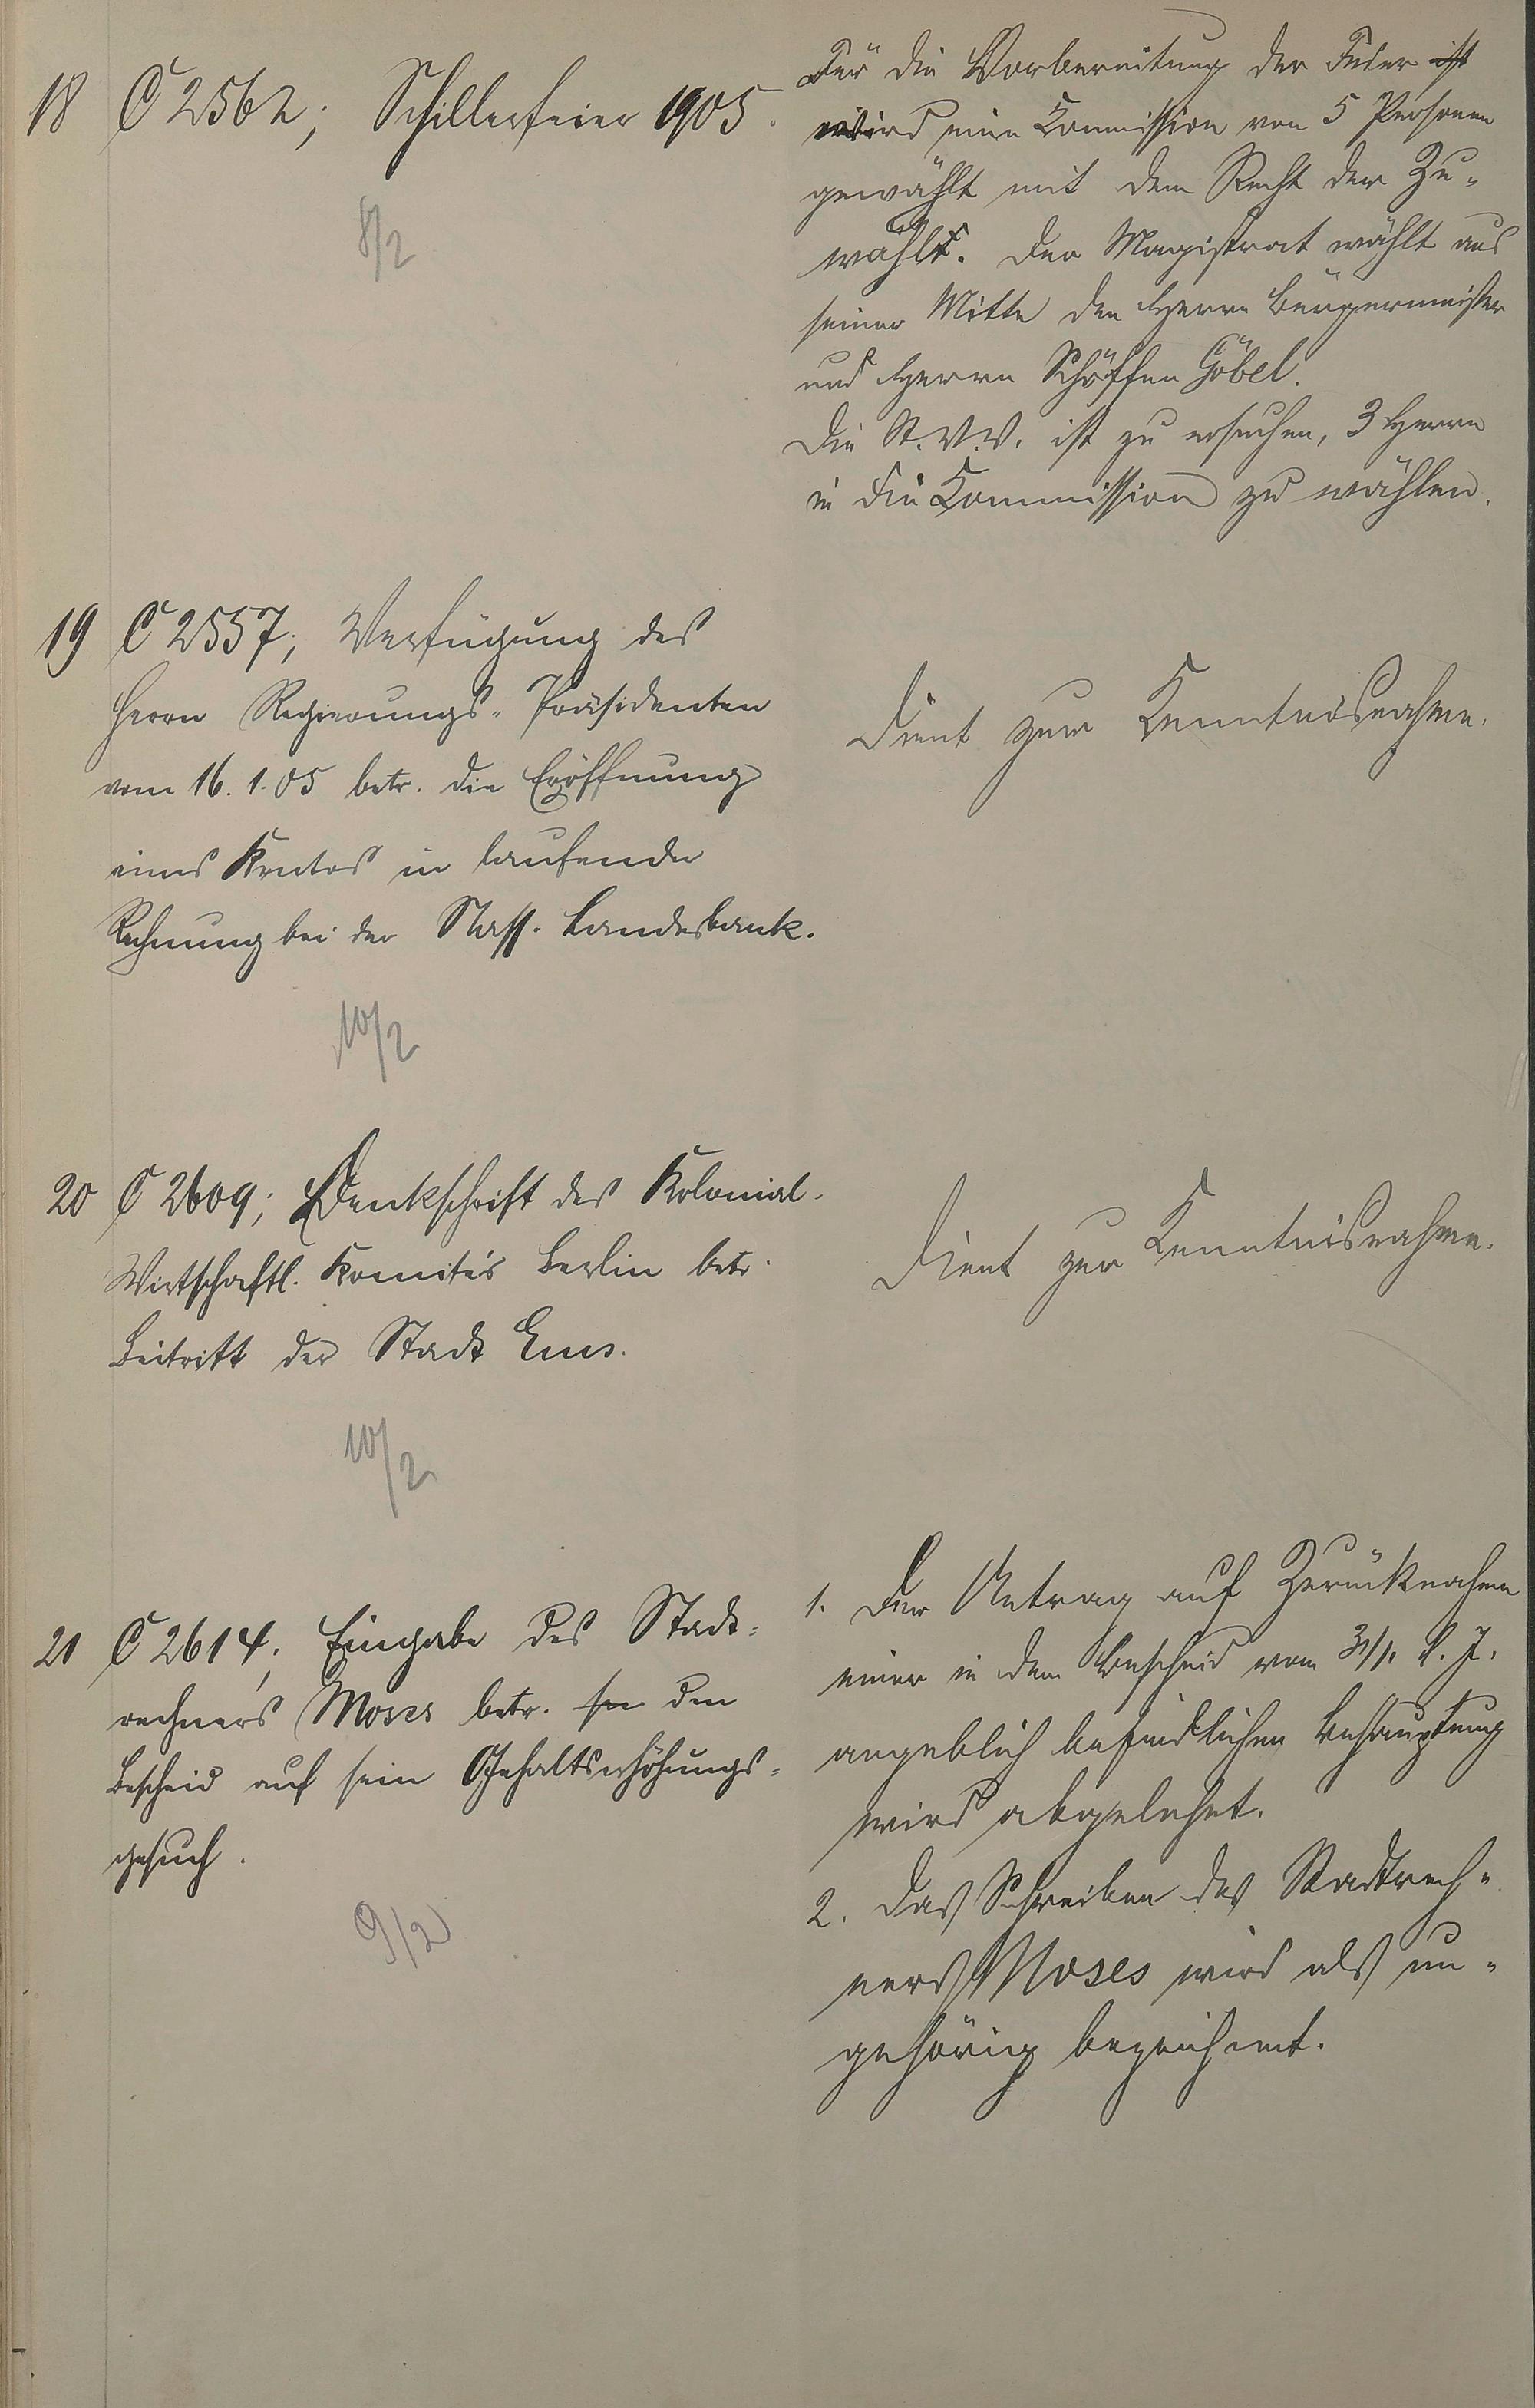 18 C 2562; Schillerfeier 1905.
8/2
Für die Vorbereitung der Feier ist
wird eine Kommission von 5 Personen
gewählt mit dem Recht der Zu-
wahl. Der Magistrat wählt aus
seiner Mitte den Herrn Bürgermeister
und Herrn Schöffen Göbel.
Die St. V. V. ist zu ersuchen, 3 Herrn
in die Kommission zu wählen.
19 C 2557; Verfügung des
Herrn Regierungs-Präsidenten
vom 16. 1. 05 betr. die Eröffnung
eines Kontos in laufender
Rechnung bei der Nass. Landesbank.
10/2
Dient zur Kenntnisnahme.
20 C 2609; Denkschrift des Kolonial-
Wirtschaftl. Komités Berlin betr.
Beitritt der Stadt Ems.
10/2
Dient zur Kenntnisnahme.
21 C 2614; Eingabe des Stadt-
rechners Moses betr. den
Bescheid auf sein Gehaltserhöhungs-
gesuch.
9/2
1. Der Antrag auf Zurücknahme
einer in dem Bescheid vom 31/1. d. J.
angeblich befindlichen Behauptung
wird abgelehnt.
2. Das Schreiben des Stadtrech-
ners Moses wird als un-
gehörig bezeichnet.